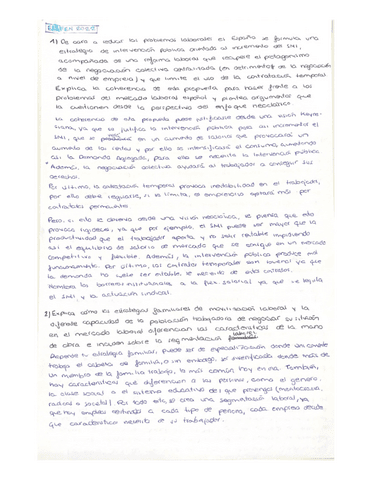 1) De cara a reducir los problemas laborales el España se formula una
estrategia de intervención pública orientada al incremento del SMI,
acompañada de una reforma laboral que recupere el protagonismo
de la negociación colectiva centralizada (en detrimento de la negociación
a nivel de empresa) y que limite el uso de la contratación temporal.
Explica la coherencia de esta propuesta para hacer frente a los
problemas del mercado laboral español y plantea argumentos que
la cuestionen desde la perspectiva del enfoque neoclásico
la coherencia de esta propuesta puede justificarse desde una visión
ya que se justifica la intervención pública para así incrementar el
SMI, que se en un aumento de salarios que provocará un
aumento de las rentas y por ello se intensificará el consumo, aumentando
así la Demanda Agregada, para ello se necesita la intervención pública
Además, la negociación colectiva ayudará al trabajador a conseguir sus
derechos.
Por último, la contratación temporal provoca inestabilidad en el trabajador,
por ello debe regularse, si se limita, el empresario optará más por
contratos permanentes
Pero, si ello se observa desde una visión neoclásica, se piensa que ello
provoca rigideces, ya que por ejemplo, el SMI puede ser mayor que la
productividad que el trabajador aporta y no salir rentable impidiendo
así el equilibrio de salarios de mercado que se consigue en un mercado
competitivo y flexible. Además, la intervención pública produce mal
funcionamiento. Por último, los contratos temporales son buenos ya que
la demanda no suele ser estable, se necesita de esta contratos.
Nombra las barreras institucionales a la flex. salarial ya que se regula
el SMI y la actuación sindical.
2) Explica cómo las estrategias familiares de movilización laboral y la
diferente capacidad de la población trabajadora de negociar su
en el mercado laboral diferencian las características de la mano
de obra e inciden sobre la segmentación
Depende la estrategia familiar, puede ser de especialización donde
trabaja el cabeza de familia, o sin embargo, la diversificada donde más de
un miembro de la familia trabaja, lo más común hoy en día. También,
hay características que diferencian a las personas, como el género,
la clase social o el entorno educativo del que provenga
Por todo ello, se crea una segmentación laboral, ya
que hay empleos destinados a cada tipo de persona, cada empresa desea
que característica necesita de su trabajador.